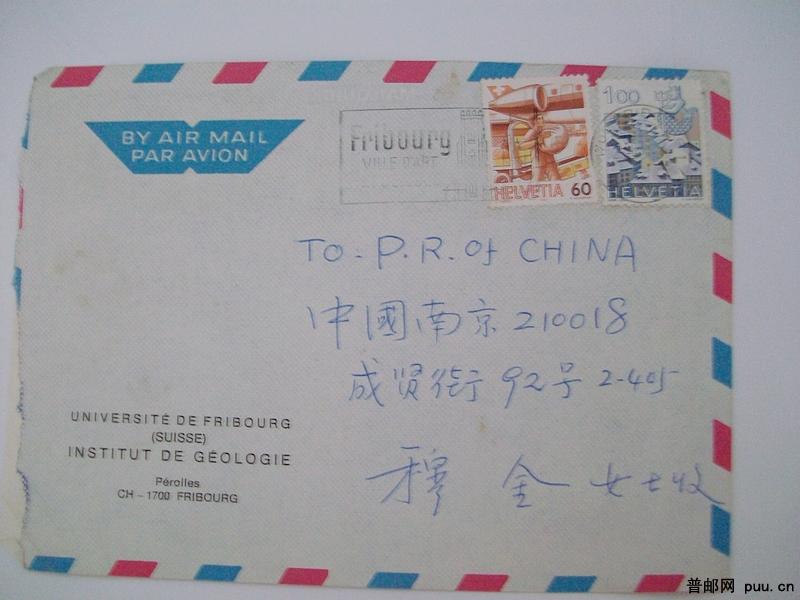 BY AIR MAIL
PAR AVION
Fribourg
VILLE D'ART
HELVETIA 60
1.00
HELVETIA
TO - P.R. of CHINA
中國南京 210018
成贤街 92号 2-405
穆 金 女士收
UNIVERSITÉ DE FRIBOURG
(SUISSE)
INSTITUT DE GÉOLOGIE
Pérolles
CH – 1700 FRIBOURG
普邮网 puu.cn